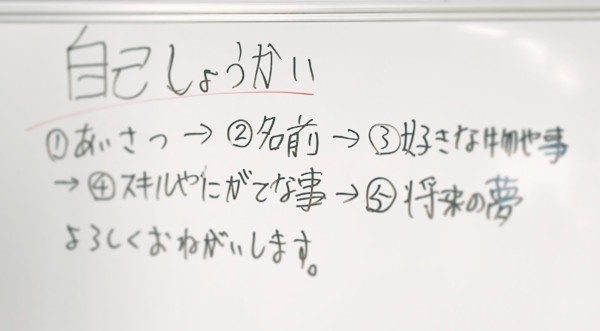 自己しょうかい
①あいさつ→②名前→③好きな物や事
→④スキルやにがてな事→⑤将来の夢
よろしくおねがいします。